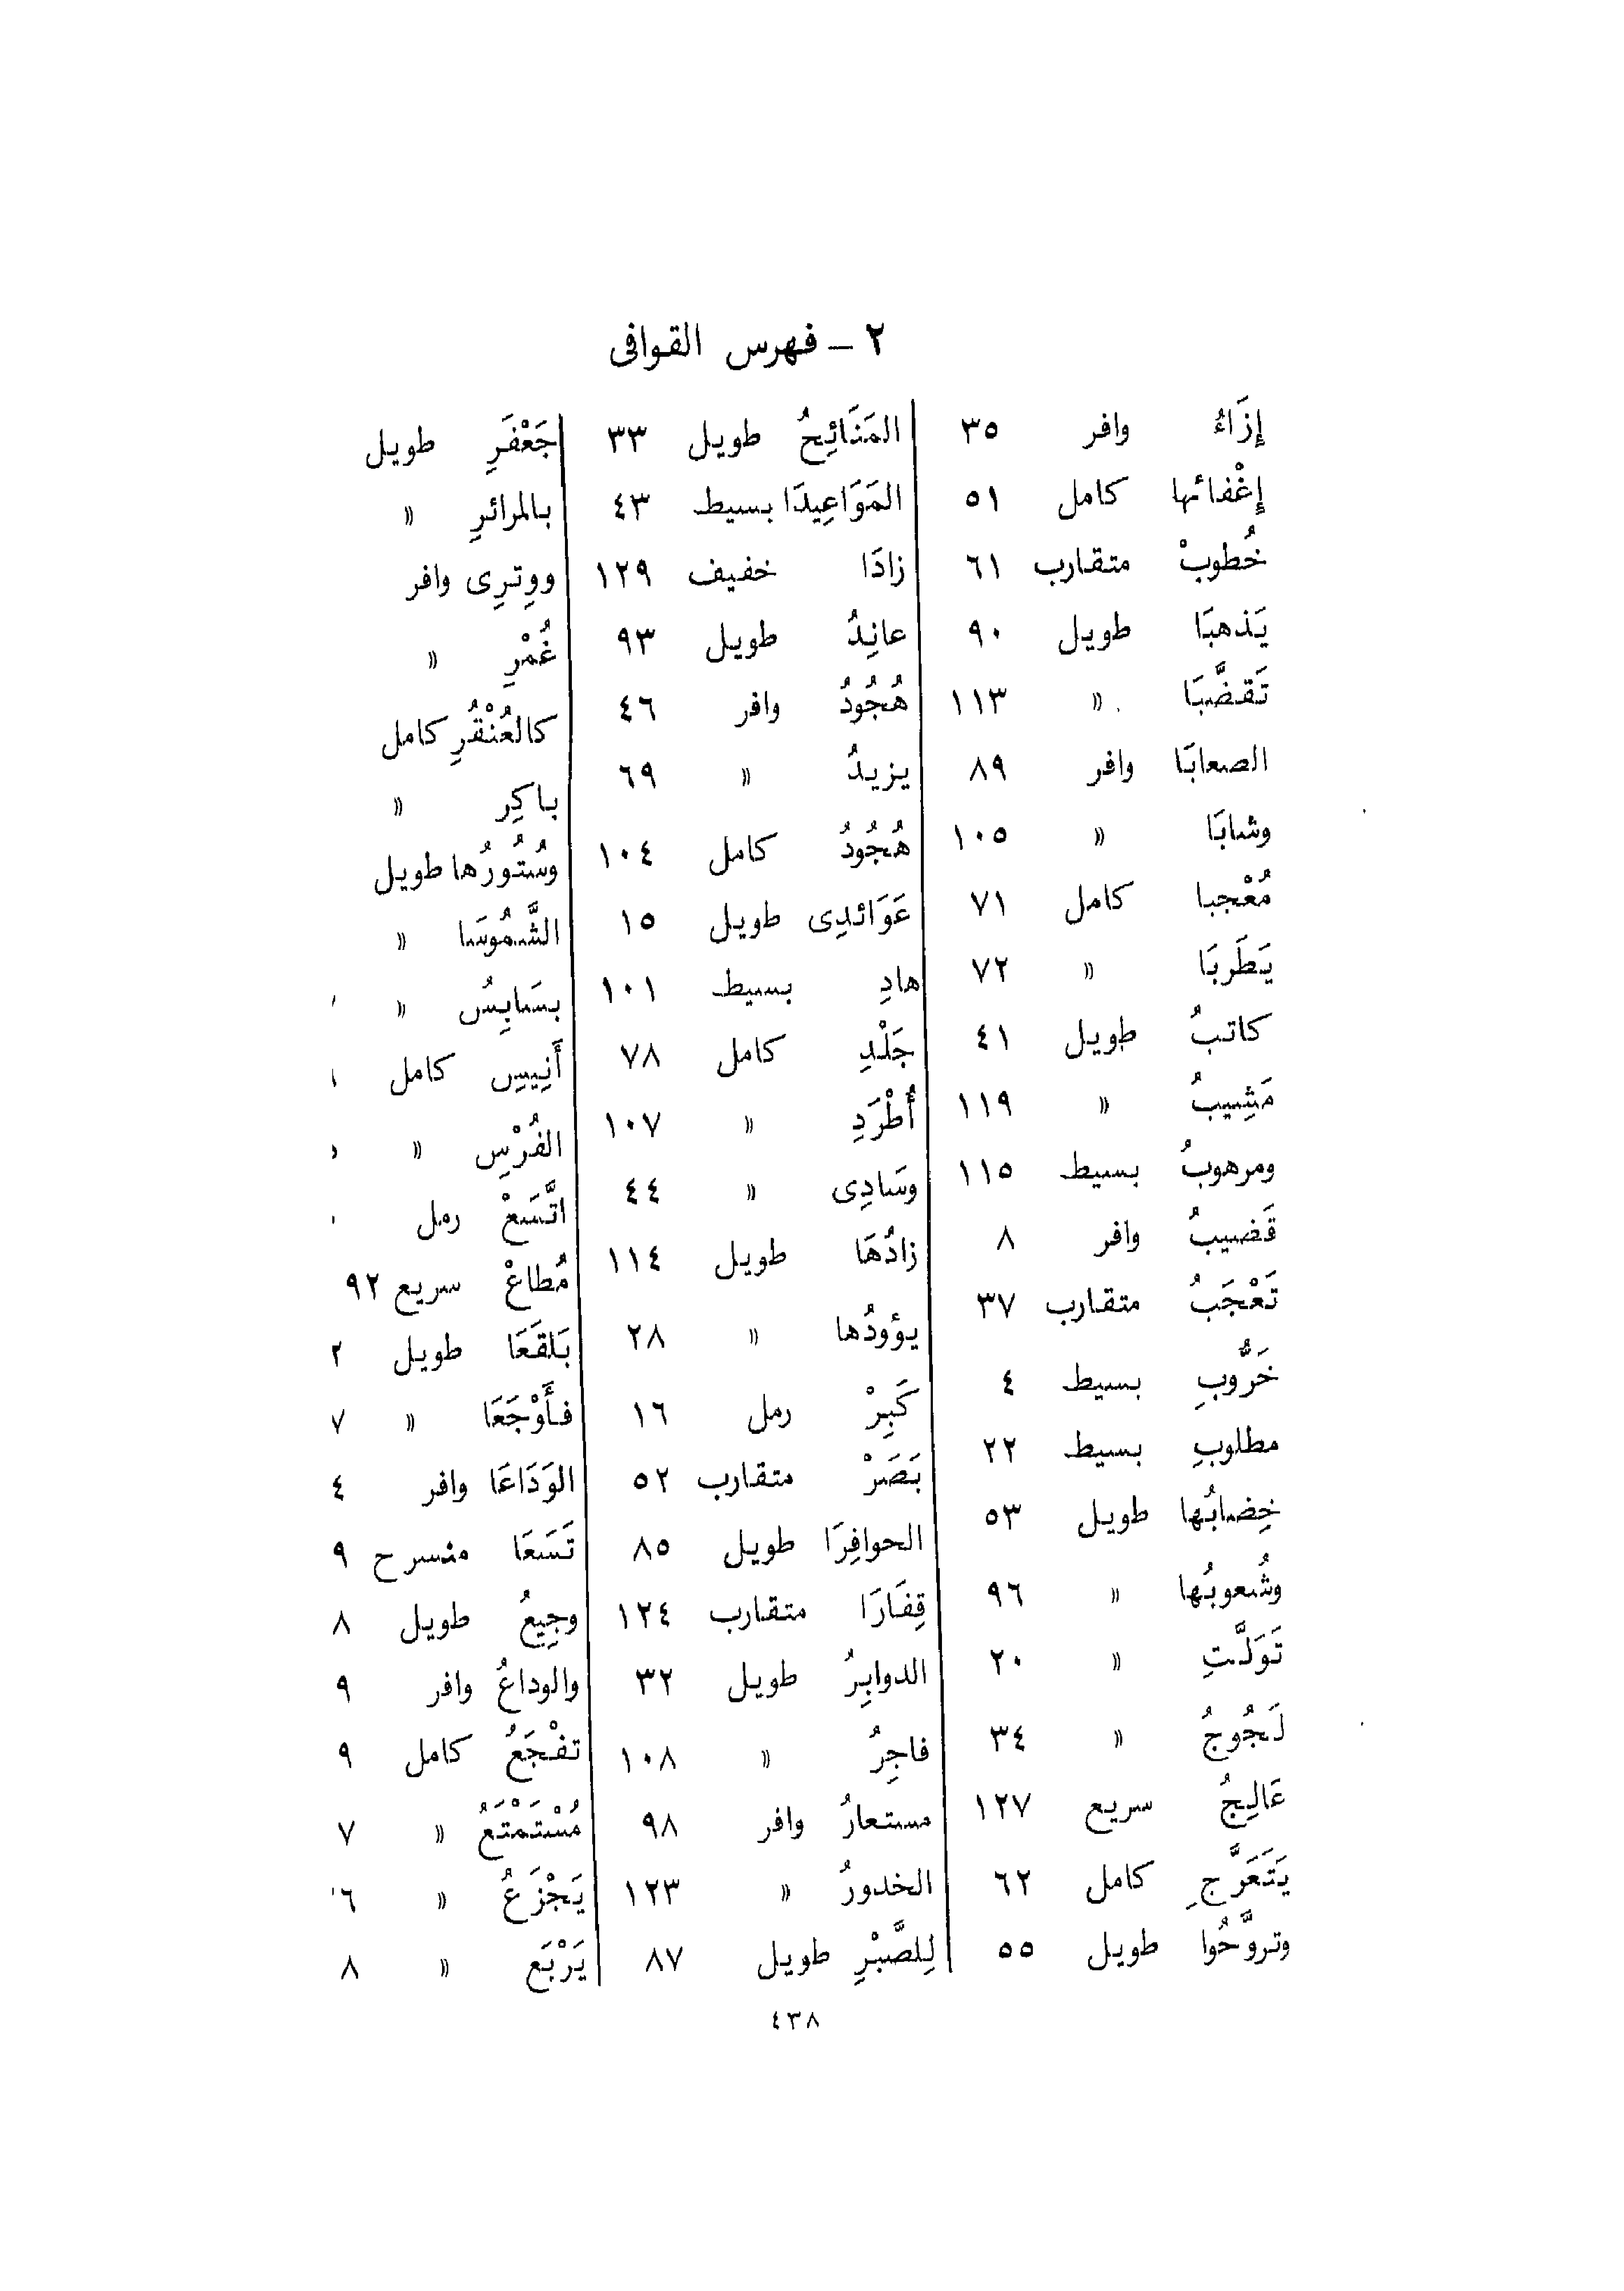 ٢ – فهرس القوافى
إزَاءُ وافر ٣٥
إغْفائها كامل ٥١
خُطوبْ متقارب ٦١
يَذهبَا طويل ٩٠
تَقضَّبَا » ١١٣
الصعابَا وافر ٨٩
وشابَا » ١٠٥
مُعْجبا كامل ٧١
يَطَربَا » ٧٢
كاتبُ طويل ٤١
مَشِيبُ » ١١٩
ومرهوبُ بسيط ١١٥
قَضيبُ وافر ٨
تَعْجَبُ متقارب ٣٧
خَرُّوبِ بسيط ٤
مطلوبِ بسيط ٢٢
خِضابُها طويل ٥٣
وشُعوبُها » ٩٦
تَوَلَّتِ » ٢٠
لَجُوجُ » ٣٤
عَالِجُ سريع ١٢٧
يَتَعَرَّجِ كامل ٦٢
وتروَّحُوا طويل ٥٥
المَنَائِحُ طويل ٣٣
المَوَاعِيدَا بسيط ٤٣
زادَا خفيف ١٢٩
عانِدُ طويل ٩٣
هُجُودُ وافر ٤٦
يزيدُ » ٦٩
هُجُودُ كامل ١٠٤
عَوَائدِى طويل ١٥
هادِ بسيط ١٠١
جَلْدِ كامل ٧٨
أُطْرَدِ » ١٠٧
وسَادِى » ٤٤
زادُهَا طويل ١١٤
يؤودُها » ٢٨
كَبِرْ رمل ١٦
بَصَرْ متقارب ٥٢
الحوافِرَا طويل ٨٥
قِفَارَا متقارب ١٢٤
الدوابِرُ طويل ٣٢
فاجِرُ » ١٠٨
مستعارُ وافر ٩٨
الخدورُ » ١٢٣
لِلصَّبْرِ طويل ٨٧
جَعْفَرِ طويل
بالمرائرِ »
ووِترِى وافر
غُمْرِ »
كالعُنْقُرِ كامل
باكِر »
وسُتُورُها طويل
الشَّمُوسَا »
بسَابِسُ »
أَنِيسِ كامل
الفُرْسِ »
اتَّسَعْ رمل
مُطاعْ سريع ٩٢
بَلقَعَا طويل ٢
فأَوْجَعَا » ٧
الوَدَاعَا وافر ٤
تَسَعَا منسرح ٩
وجِيعُ طويل ٨
والوداعُ وافر ٩
تفْجَعُ كامل ٩
مُسْتَمْتَعُ » ٧
يَجْزَعُ » ٦
يَرْبَع » ٨
٤٣٨